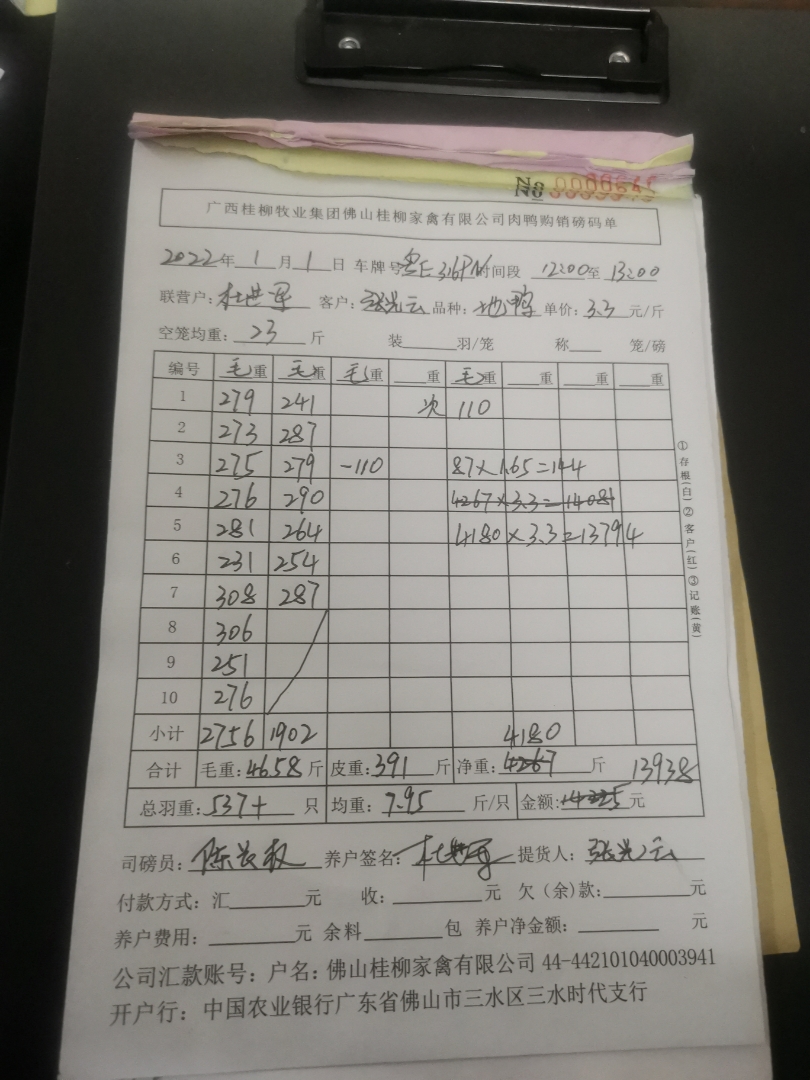 No
广西桂柳牧业集团佛山桂柳家禽有限公司肉鸭购销磅码单
2022年 1 月 1 日 车牌号 时间段 12:00 至 13:00
联营户: 客户: 张光云 品种: 地鸭 单价: 3.3 元/斤
空笼均重: 23 斤 装 羽/笼 称 笼/磅
编号 毛重 毛重 毛重 重 毛重 重 重 重
1 279 241 次 110
2 273 287
3 275 279 -110 87×1.65=144
4 276 290 4267×3.3=14081
5 281 264 4180×3.3=13794
6 231 254
7 308 287
8 306
9 251
10 276
小计 2756 1902 4180
合计 毛重: 4658 斤 皮重: 391 斤 净重: 4267 斤 13938
总羽重: 537+ 只 均重: 7.95 斤/只 金额: 元
司磅员: 养户签名: 提货人: 张光云
付款方式: 汇 元 收: 元 欠(余)款: 元
养户费用: 元 余料 包 养户净金额: 元
公司汇款账号: 户名: 佛山桂柳家禽有限公司 44-442101040003941
开户行: 中国农业银行广东省佛山市三水区三水时代支行
①存根(白)②客户(红)③记账(黄)